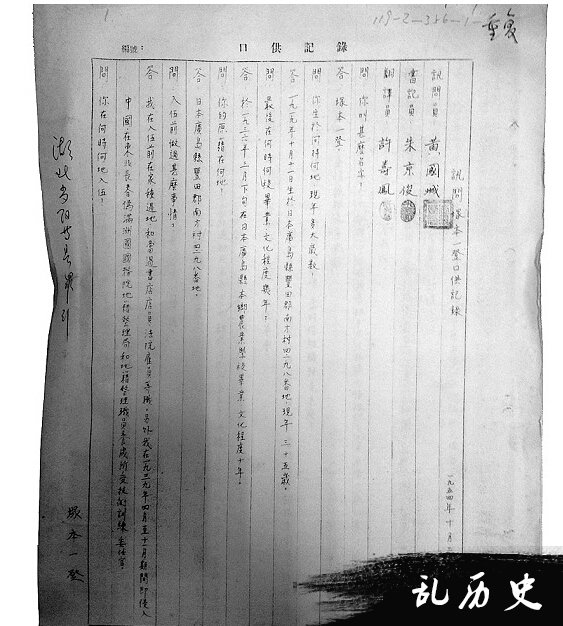 119-2-386-1-
重復
口供記錄
編號:
訊問塚本一登口供記錄
一九五四年十月
訊問員 黃國城
書記員 朱京俊
翻譯員 許壽鳳
問:你叫甚麼名字?
答:塚本一登
問:你生於何時何地,現年多大歲數?
答:一九一九年十月十一日生於日本廣島縣豐田郡南方村四二九八番地,現年三十五歲。
問:最後在何時何校畢業,文化程度幾年?
答:於一九三六年三月下旬在日本廣島縣本鄉農業學校畢業,文化程度十年。
問:你的原籍在何地?
答:日本廣島縣豐田郡南方村四二九八番地。
問:入伍前做過甚麼事情?
答:我在入伍前在家種過地和當過書店店員,法院雇員等職。另外我在一九三九年四月至十一月期間即侵入
中國在東北長春偽滿洲國國務院地籍整理局和地籍整理職員養成所受技術訓練
問:你在何時何地入伍?
塚本一登
乱历史